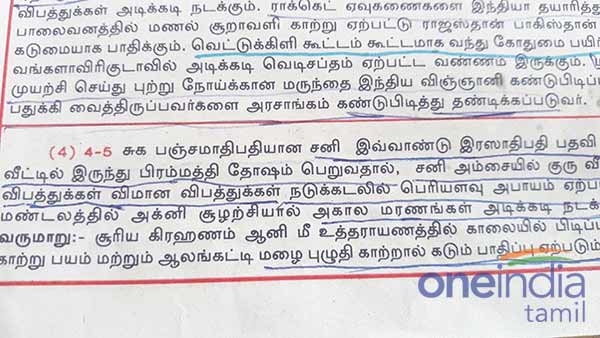 விபத்துக்கள் அடிக்கடி நடக்கும். ராக்கெட் ஏவுகணைகளை இந்தியா தயாரித்து
பாலைவனத்தில் மணல் சூறாவளி காற்று ஏற்பட்டு ராஜஸ்தான் பாகிஸ்தான்
கடுமையாக பாதிக்கும். வெட்டுக்கிளி கூட்டம் கூட்டமாக வந்து கோதுமை பயி
வங்களாவிரிகுடாவில் அடிக்கடி வெடிசப்தம் ஏற்பட்ட வண்ணம் இருக்கும்.
முயற்சி செய்து புற்று நோய்க்கான மருந்தை இந்திய விஞ்ஞானி கண்டுபிடிப்ப
பதுக்கி வைத்திருப்பவர்களை அரசாங்கம் கண்டுபிடித்து தண்டிக்கப்படுவர்.
(4) 4-5 சுக பஞ்சமாதிபதியான சனி இவ்வாண்டு இரஸாதிபதி பதவி
வீட்டில் இருந்து பிரம்மத்தி தோஷம் பெறுவதால், சனி அம்சையில் குரு வீ
விபத்துக்கள் விமான விபத்துக்கள் நடுக்கடலில் பெரியளவு அபாயம் ஏற்ப
மண்டலத்தில் அக்னி சூழற்சியால் அகால மரணங்கள் அடிக்கடி நடக்
வருமாறு:- சூரிய கிரஹணம் ஆனி மீ உத்தராயணத்தில் காலையில் பிடிப்
காற்று பயம் மற்றும் ஆலங்கட்டி மழை புழுதி காற்றால் கடும் பாதிப்பு ஏற்படும்
oneindia
tamil